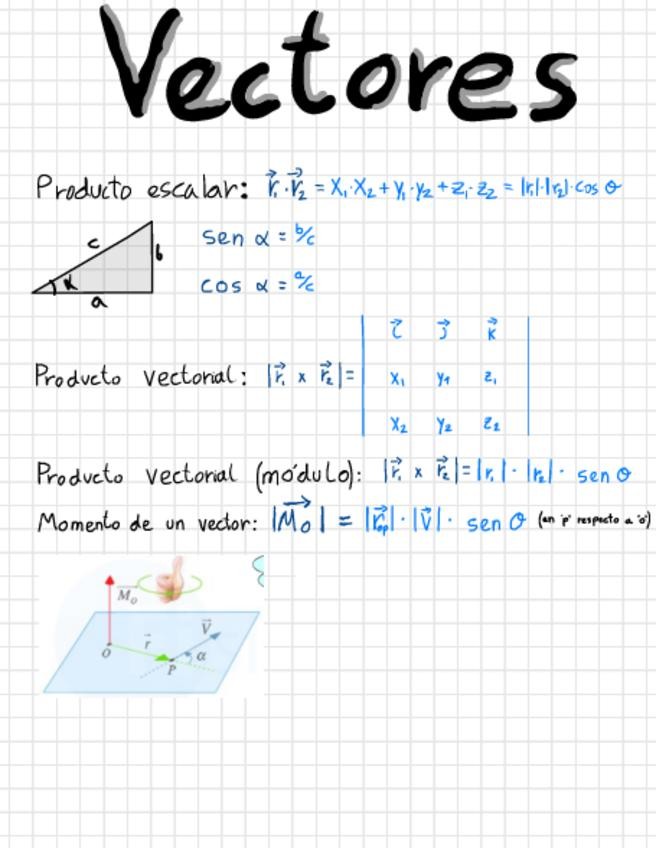 Vectores
Producto escalar: r⃗₁·r⃗₂ = x₁·x₂ + y₁·y₂ + z₁·z₂ = |r₁|·|r₂|·cos θ
c
b
α
a
sen α = b/c
cos α = a/c
Producto vectorial: |r⃗₁ x r⃗₂| =
i⃗ j⃗ k⃗
x₁ y₁ z₁
x₂ y₂ z₂
Producto vectorial (módulo): |r⃗₁ x r⃗₂| = |r₁|·|r₂|· sen θ
Momento de un vector: |M⃗₀| = |r⃗ₒₚ|·|v⃗|· sen θ (en "p" respecto a "o")
M⃗₀
V⃗
r⃗
O
α
P